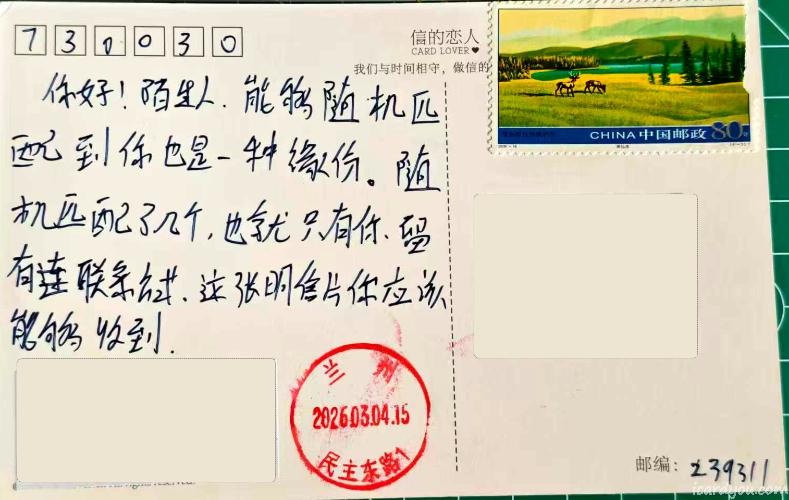 730030
信的恋人
CARD LOVER♥
我们与时间相守,做信的
CHINA 中国邮政 80分
你好!陌生人.能够随机匹
配到你也是一种缘份。随
机匹配了几个,也就只有你.留
有连联系方式.这张明信片你应该
能够收到.
兰州
2026.03.04.15
民主东路1
邮编:239311
icardyou.com